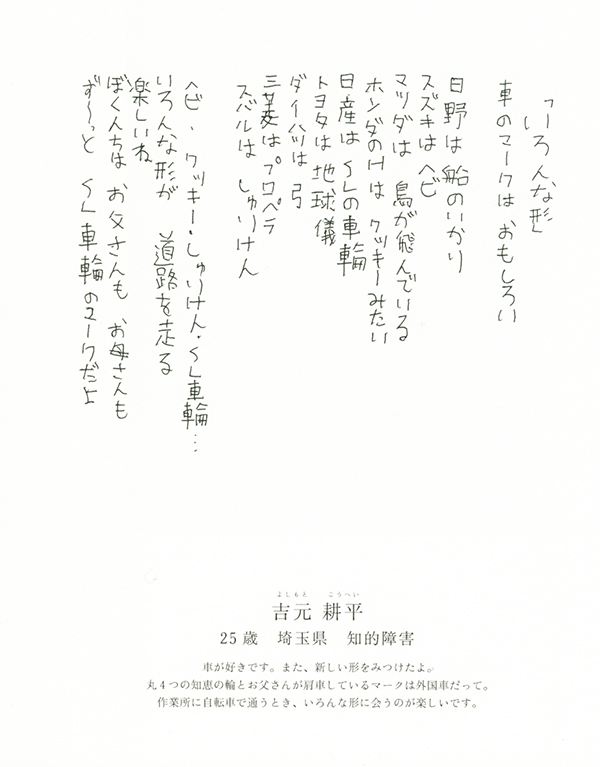 「いろんな形」
車のマークは おもしろい
日野は 船のいかり
スズキは ヘビ
マツダは 鳥が飛んでいる
ホンダのHは クッキーみたい
日産は SLの車輪
トヨタは 地球儀
ダイハツは 弓
三菱は プロペラ
スバルは しゅりけん
ヘビ・クッキー・しゅりけん・SL車輪…
いろんな形が 道路を走る
楽しいね
ぼくんちは お父さんも お母さんも
ず〜っと SL車輪のマークだよ
よしもと こうへい
吉元 耕平
25歳 埼玉県 知的障害
車が好きです。また、新しい形をみつけたよ。
丸4つの知恵の輪とお父さんが肩車しているマークは外国車だって。
作業所に自転車で通うとき、いろんな形に会うのが楽しいです。